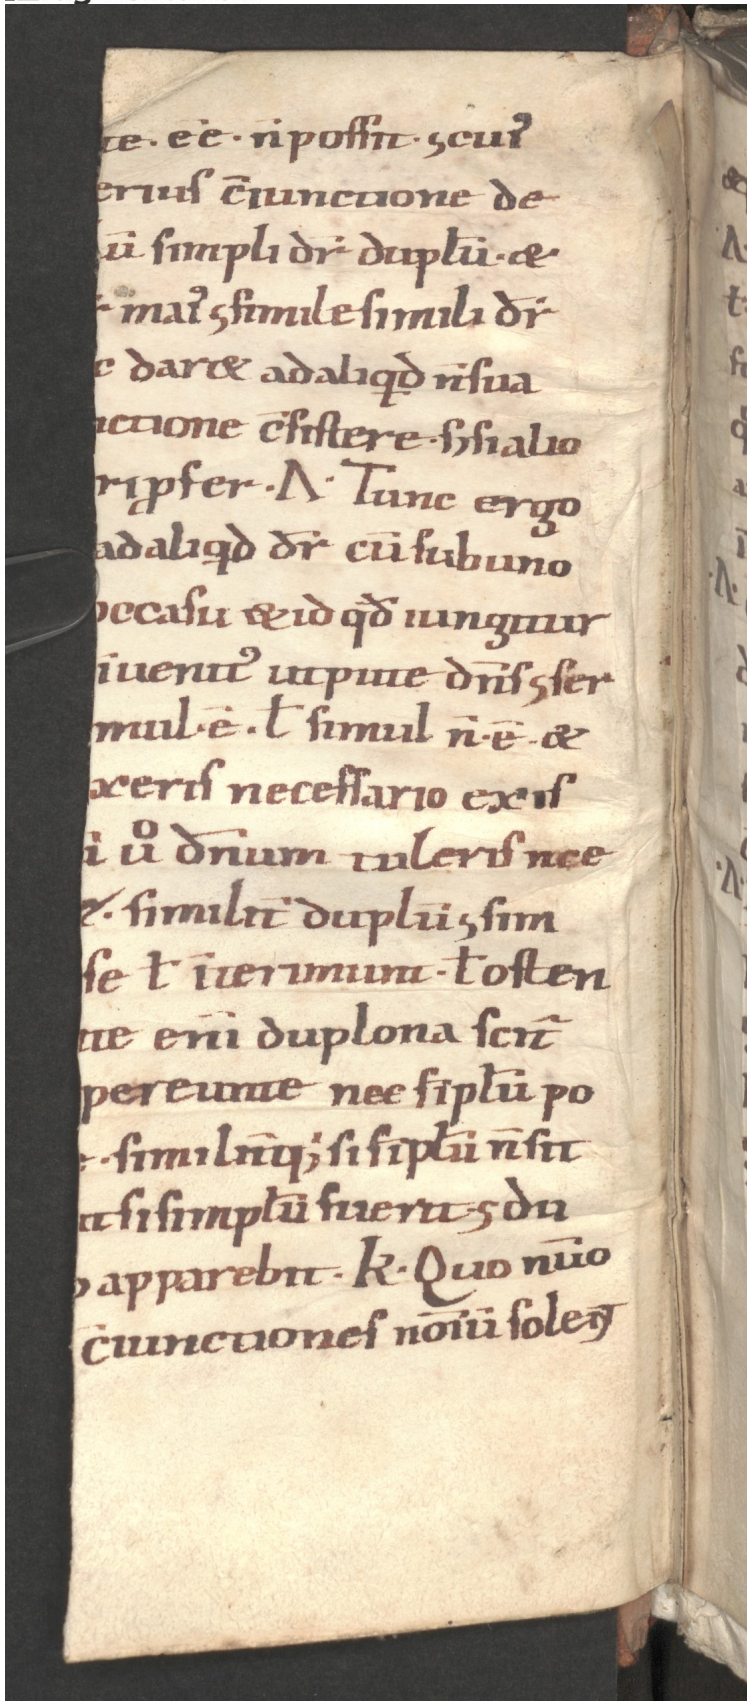 te. ee. n̄ possit. ⁊ cui᷒
erius c̄iunctione de
ū simpli dr̄ duplū. &
mai᷒ ⁊ simile simili dr̄
c dar& ad aliqd̄ n̄ sua
nctione c̄sistere. s; si alio
ripser. Λ. Tunc ergo
ad aliqd̄ dr̄ cū sub uno
occasu & id qd̄ iungitur
īuenit᷒ utpute dn̄s ⁊ ser
mul. ē. ł simul n̄. ē. &
xeris necessario ex is
i ūo dn̄ium tuleris nce
&. similit̄ duplū ⁊ sim
se ł īterimunt. ł osten
te eni duplo na scit̄
pereunte nec sīplū po
. similitq; si sīplū n̄ sit
it si simplū fuerit. ⁊ du
o apparebit. K. Quo nūo
c̄iunctiones noīū solent
ł
Λ